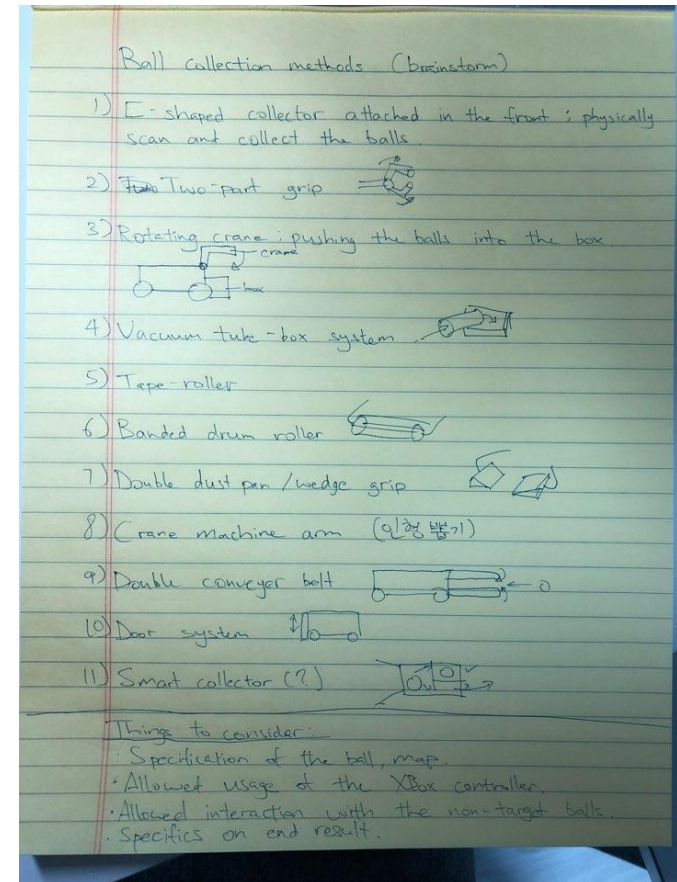 Ball collection methods (brainstorm)
1) [-shaped collector attached in the front ; physically
scan and collect the balls.
2) Two-part grip
3) Rotating crane ; pushing the balls into the box.
crane
box
4) Vacuum tube-box system
5) Tape-roller
6) Banded drum roller
7) Double dust pan / wedge grip
8) Crane machine arm (인형 뽑기)
9) Double conveyer belt
10) Door system
11) Smart collector (?)
Things to consider:
· Specification of the ball, map.
· Allowed usage of the XBox controller.
· Allowed interaction with the non-target balls.
· Specifics on end result.